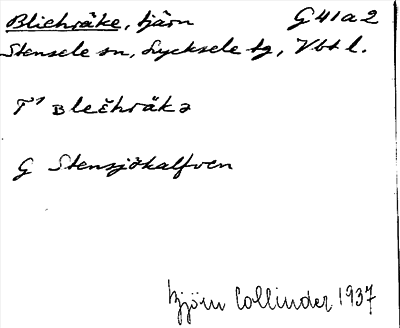 Bliehräke, tjärn G 41 a 2
Stensele sn, Lycksele tg, Vbt l.
T¹ Blečhräkə
G Stensjökalfven
Björn Collinder 1937